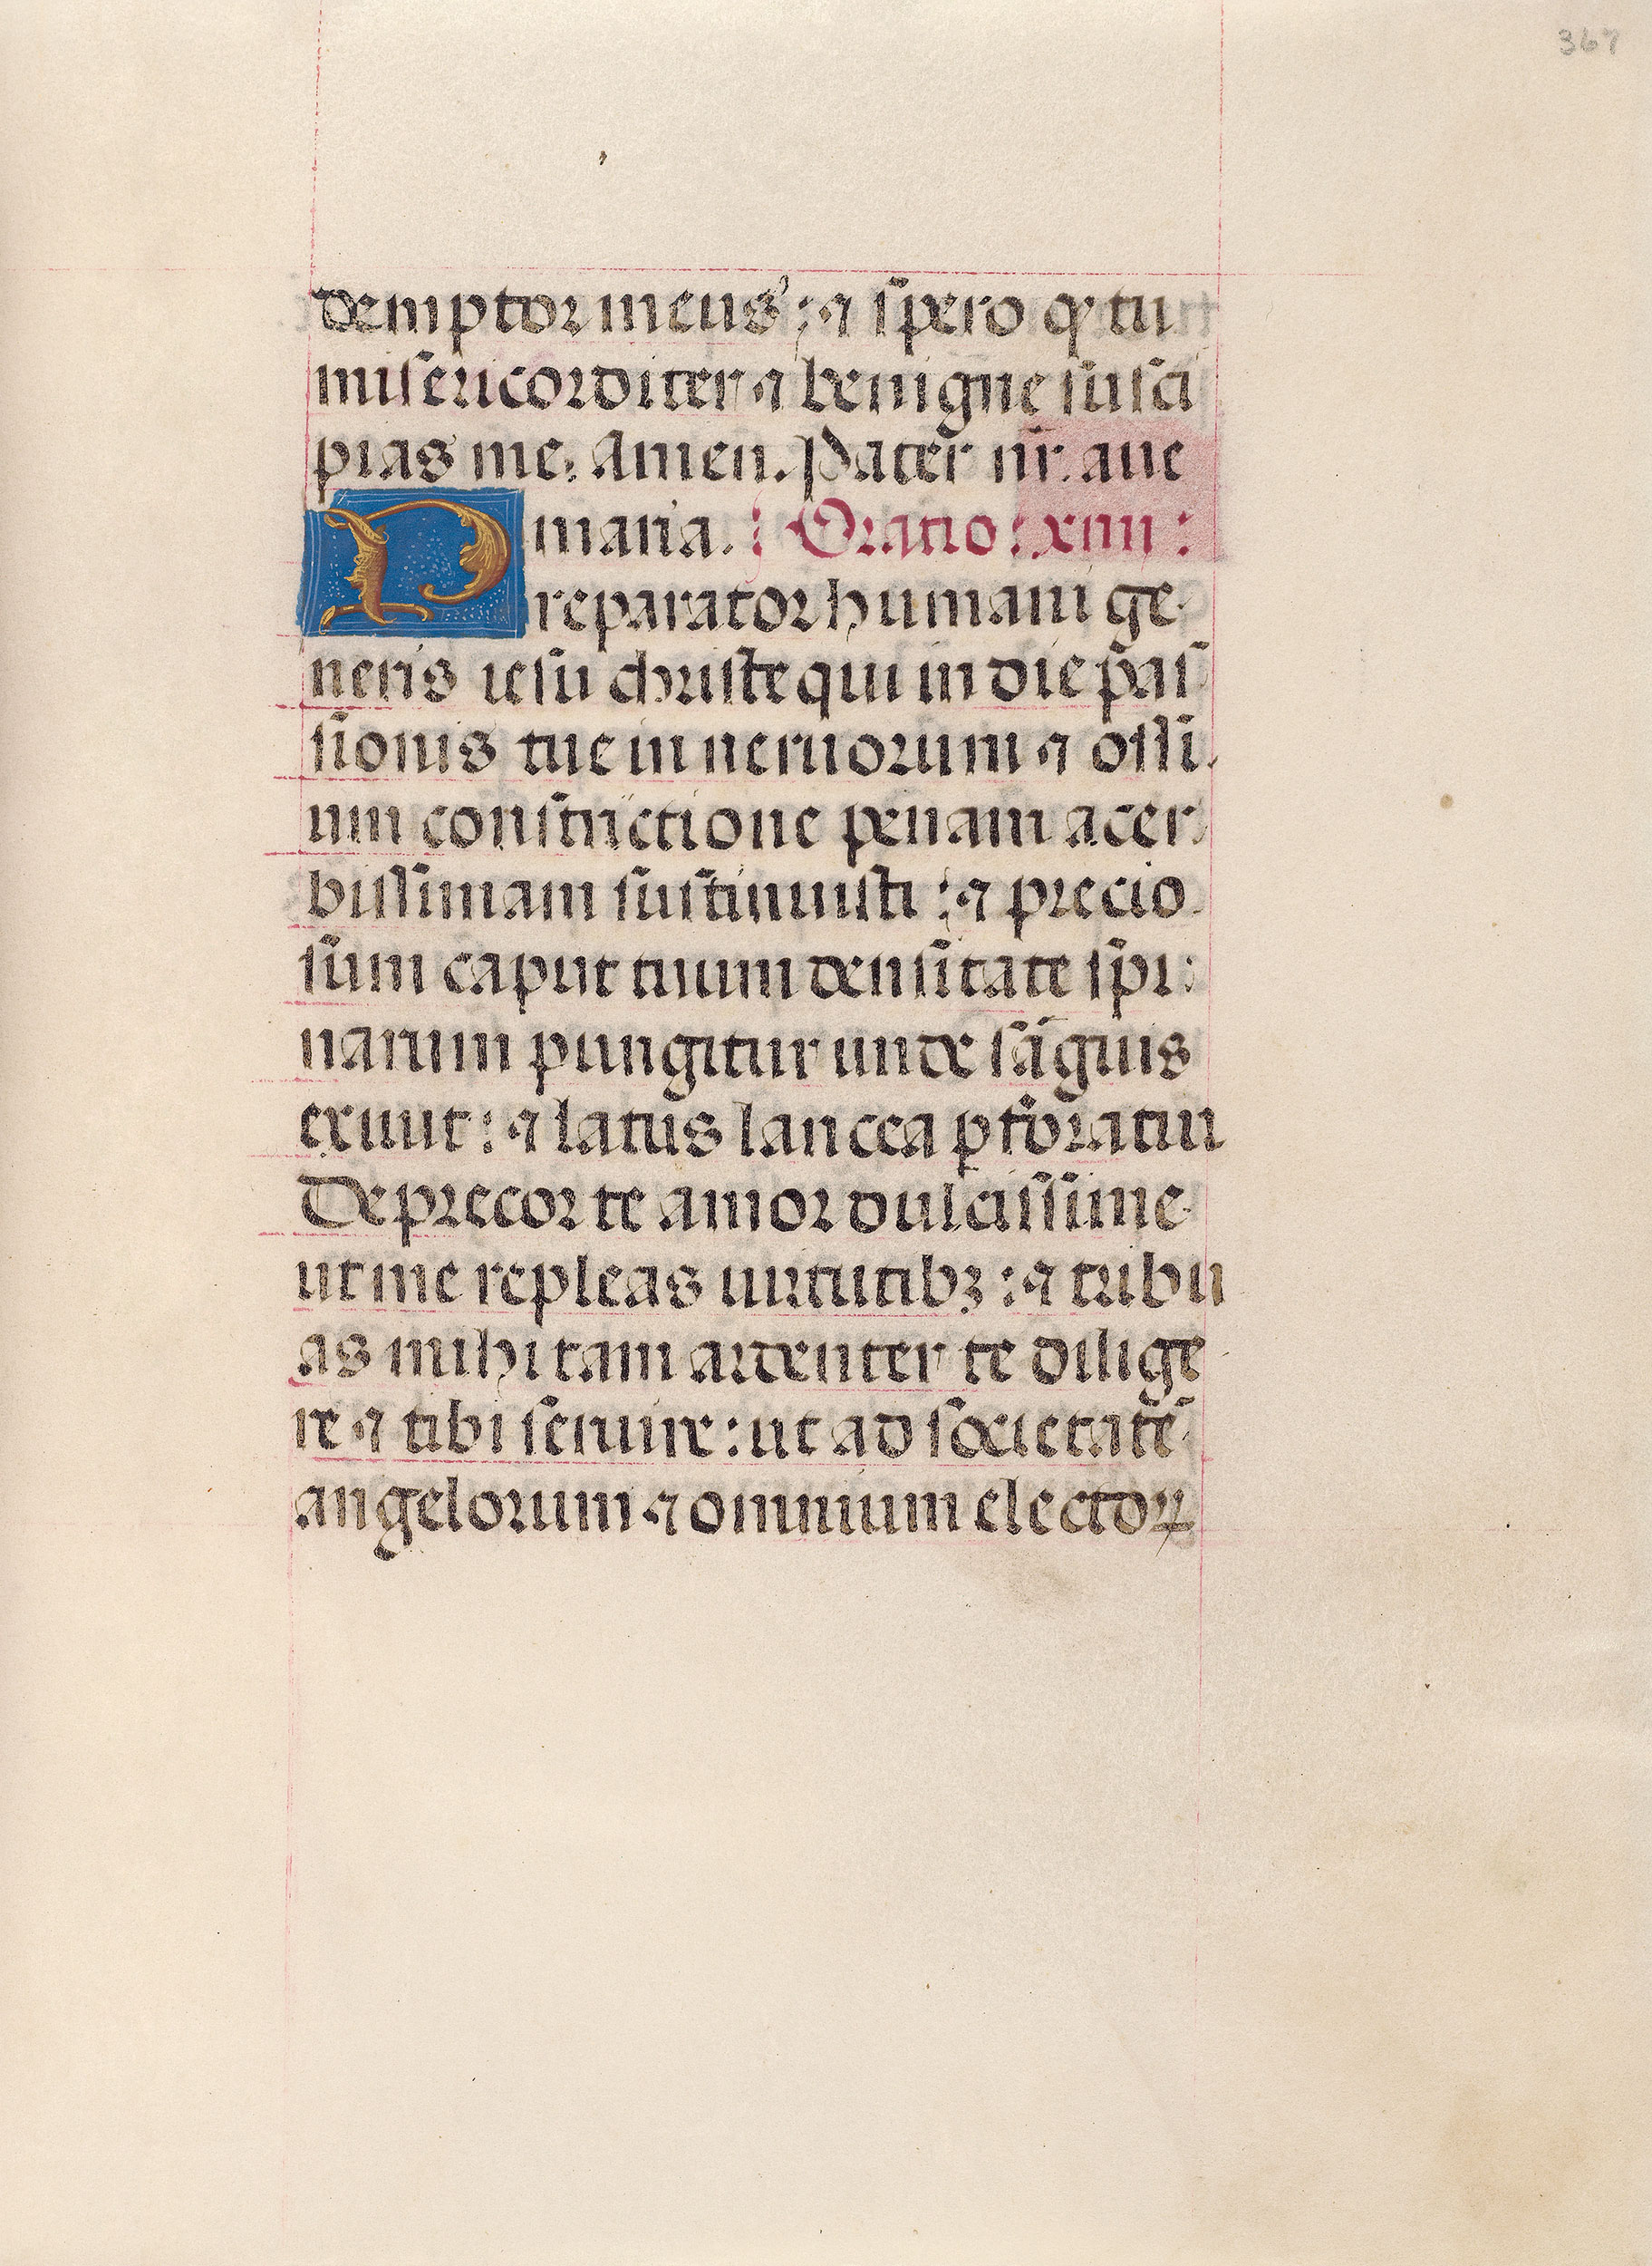 367
demptor meus : ⁊ spero qꝫ tu
misericorditer ⁊ benigne susci
pias me. Amen. Pater nr̄. aue
maria. : Oratio : xiiii :
O reparator humani ge
neris iesu christe qui in die pas
sionis tue in neruorum ⁊ ossi
um constrictione penam acer
bissimam sustinuisti : ⁊ precio
sum caput tuum densitate spi
narum pungitur unde sāguis
exiuit : ⁊ latus lancea ꝑforatū
Deprecor te amor dulcissime
ut me repleas uirtutibꝫ : ⁊ tribu
as mihi tam ardenter te dilige
re ⁊ tibi seruire : ut ad societatē
angelorum ⁊ omnium electoꝝ